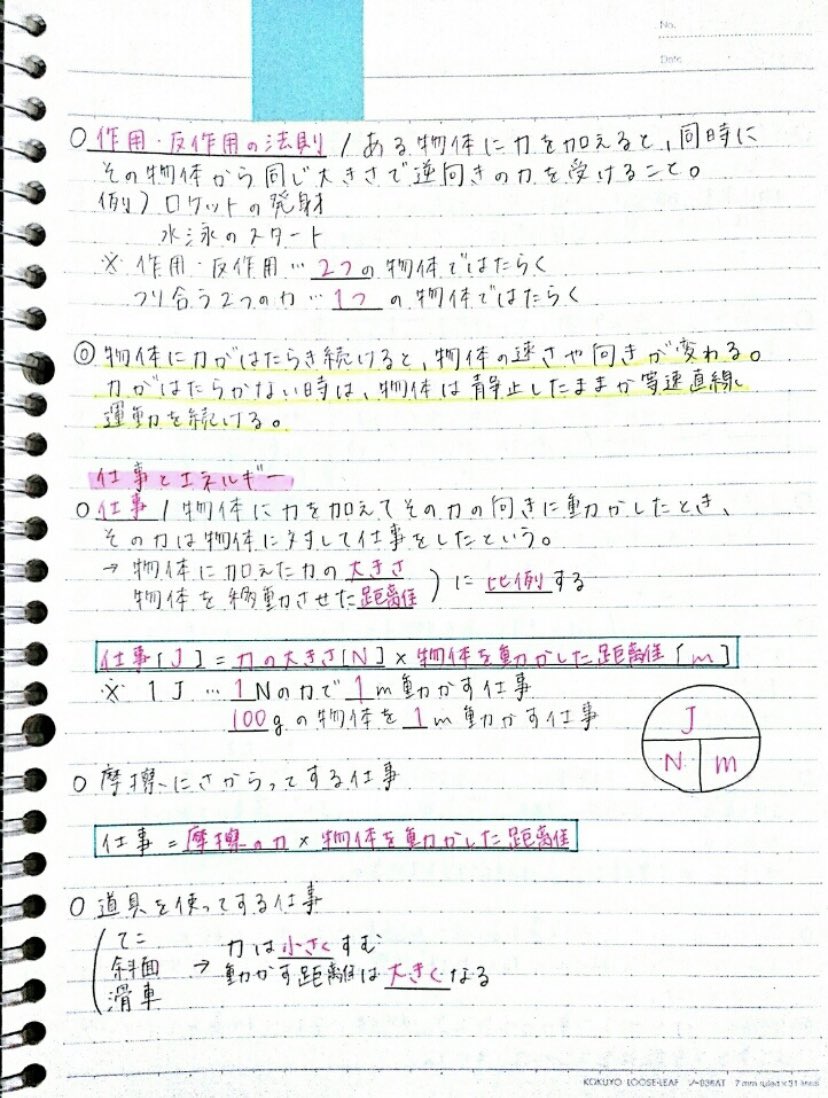 No.
Date
○作用・反作用の法則/ある物体に力を加えると、同時に
その物体から同じ大きさで逆向きの力を受けること。
例)ロケットの発射
水泳のスタート
※作用・反作用…2つの物体ではたらく
つり合う2つの力…1つの物体ではたらく
◎物体に力がはたらき続けると、物体の速さや向きが変わる。
力がはたらかない時は、物体は静止したままか等速直線
運動を続ける。
仕事とエネルギー
○仕事/物体に力を加えてその力の向きに動かしたとき、
その力は物体に対して仕事をしたという。
→物体に加えた力の大きさ
物体を移動させた距離)に比例する
仕事[J]=力の大きさ[N]×物体を動かした距離[m]
※1J…1Nの力で1m動かす仕事
100gの物体を1m動かす仕事
J
N m
○摩擦にさからってする仕事
仕事=摩擦の力×物体を動かした距離
○道具を使ってする仕事
てこ
斜面
滑車
→力は小さくすむ
動かす距離は大きくなる
KOKUYO LOOSE-LEAF ノ-836AT 7mm ruled×31 lines